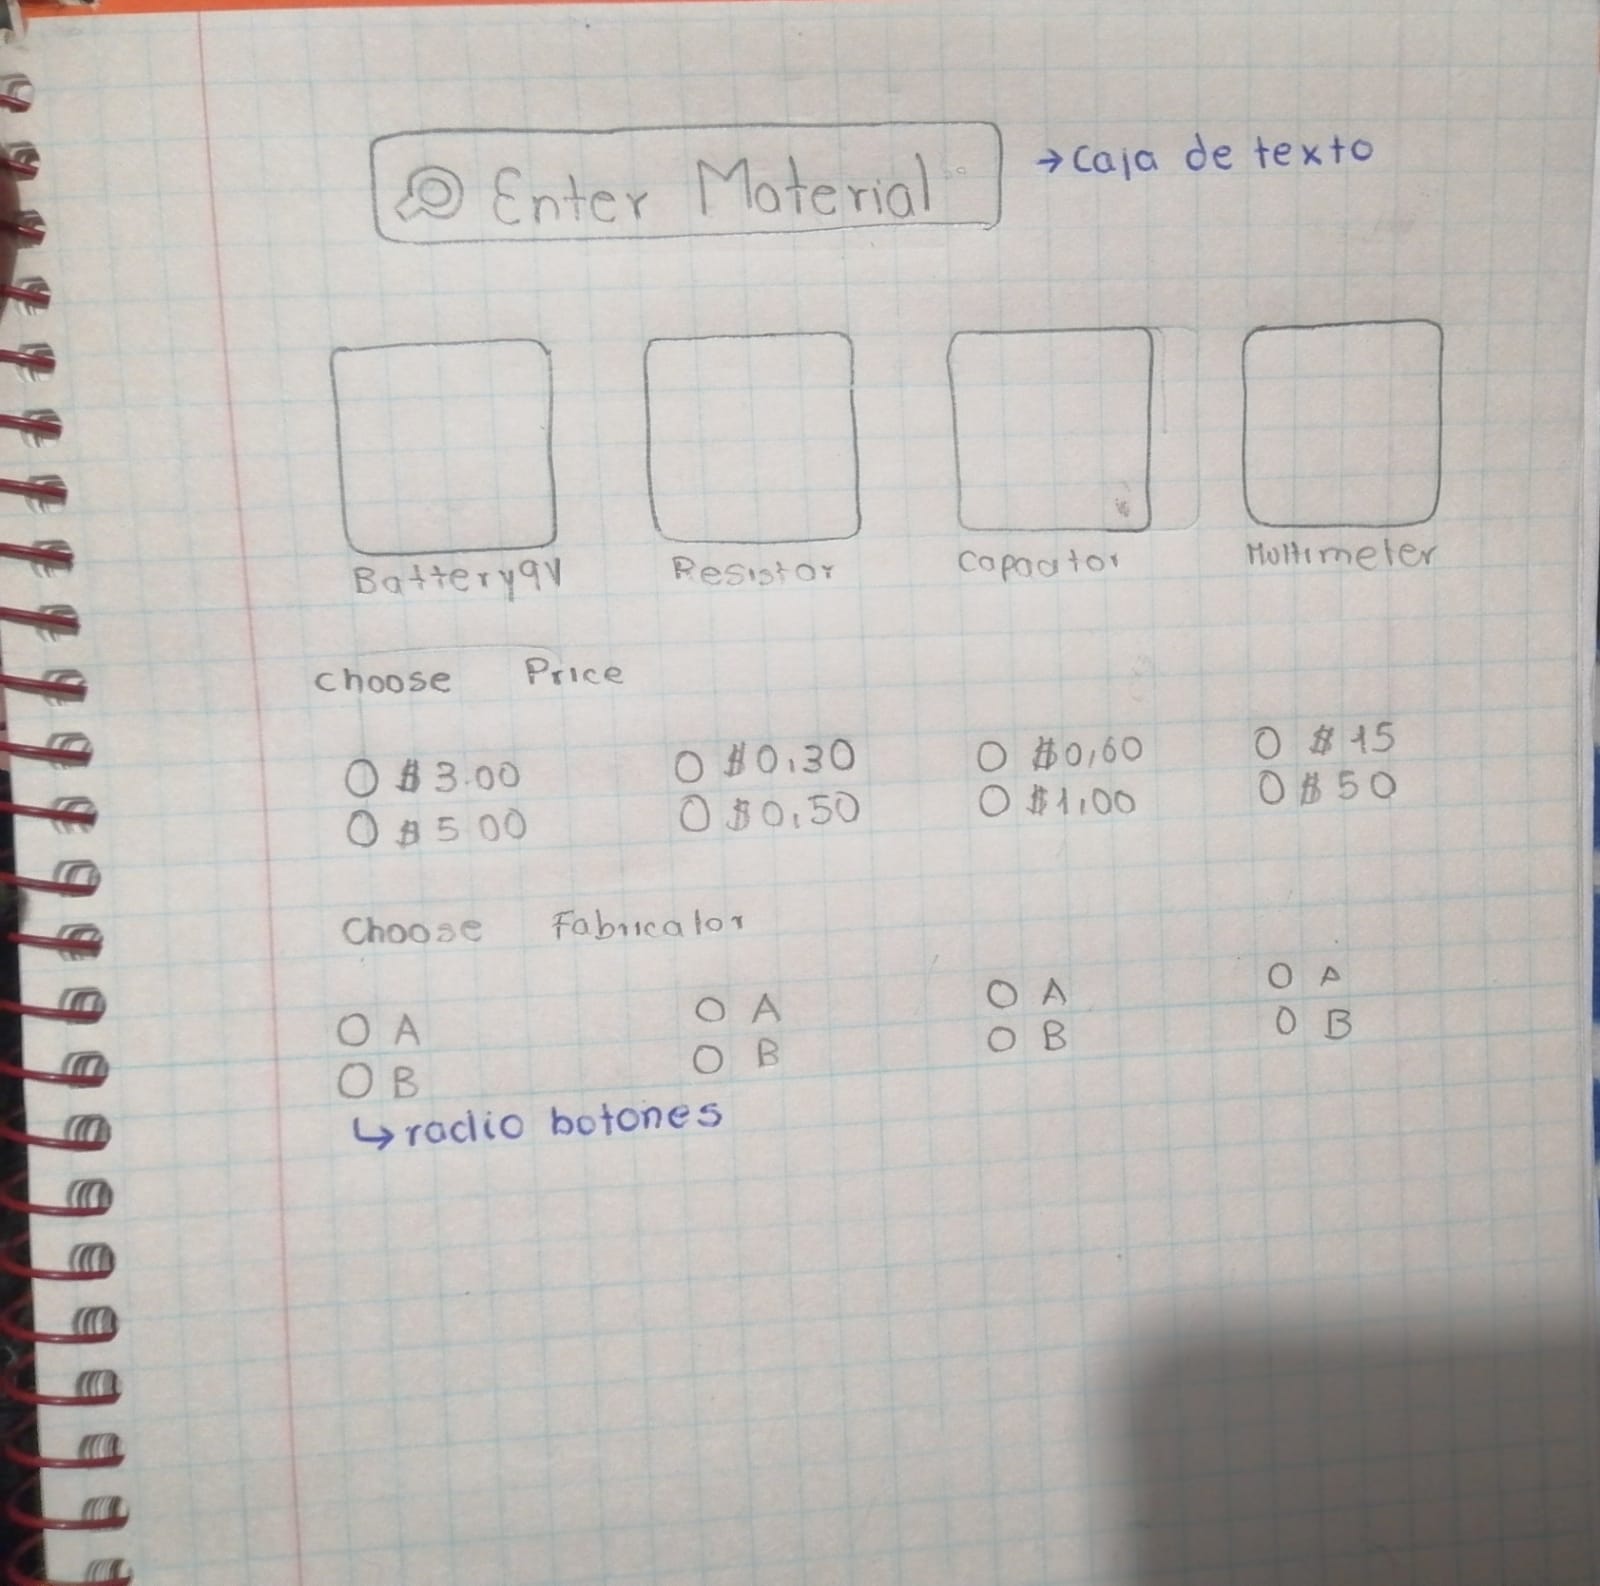 Enter Material
→ caja de texto
Battery 9V Resistor Capacitor Multimeter
choose Price
$ 3.00 $0,30 $0,60 $ 15
$ 5 00 $0,50 $1,00 $ 50
Choose Fabricator
A A A A
B B B B
↳ radio botones